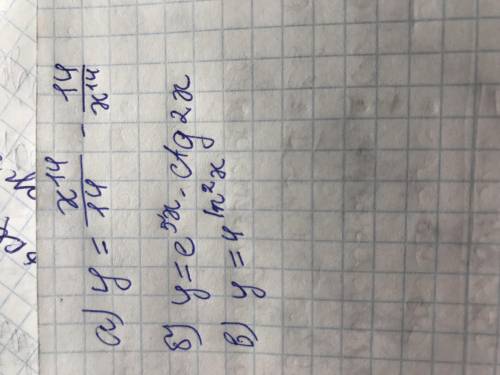 а) y = x^14/14 - 14/x^14
б) y = e^5x · ctg 2x
в) y = 4^ln²x